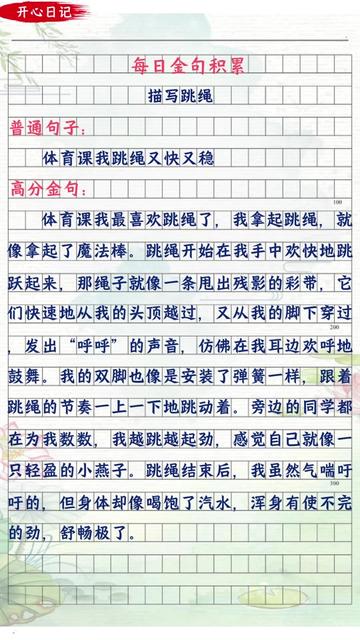 开心日记
每日金句积累
描写跳绳
普通句子：
体育课我跳绳又快又稳
高分金句：
100
体育课我最喜欢跳绳了，我拿起跳绳，就
像拿起了魔法棒。跳绳开始在我手中欢快地跳
跃起来，那绳子就像一条甩出残影的彩带，它
们快速地从我的头顶越过，又从我的脚下穿过
200
，发出“呼呼”的声音，仿佛在我耳边欢呼地
鼓舞。我的双脚也像是安装了弹簧一样，跟着
跳绳的节奏一上一下地跳动着。旁边的同学都
在为我数数，我越跳越起劲，感觉自己就像一
只轻盈的小燕子。跳绳结束后，我虽然气喘吁
300
吁的，但身体却像喝饱了汽水，浑身有使不完
的劲，舒畅极了。